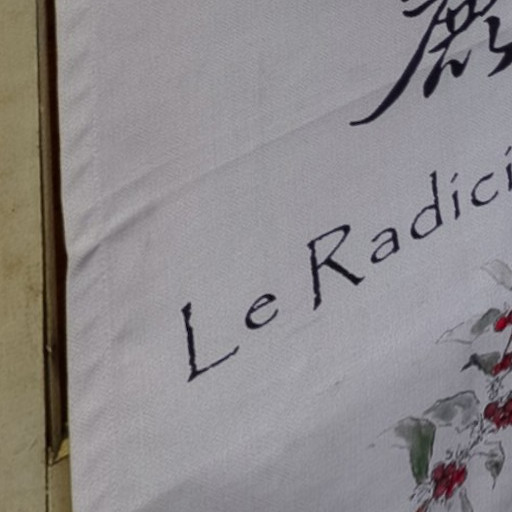 Le Radici